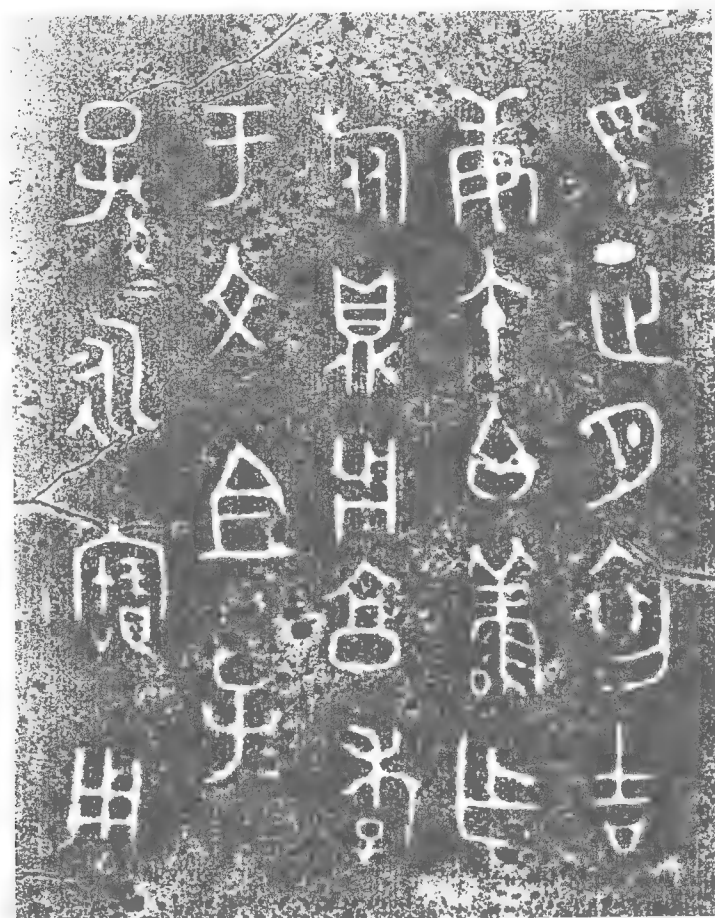 隹正月初吉
庚午白鮮乍
旅鼎用亯孝
于文且子=
孫=永寶用